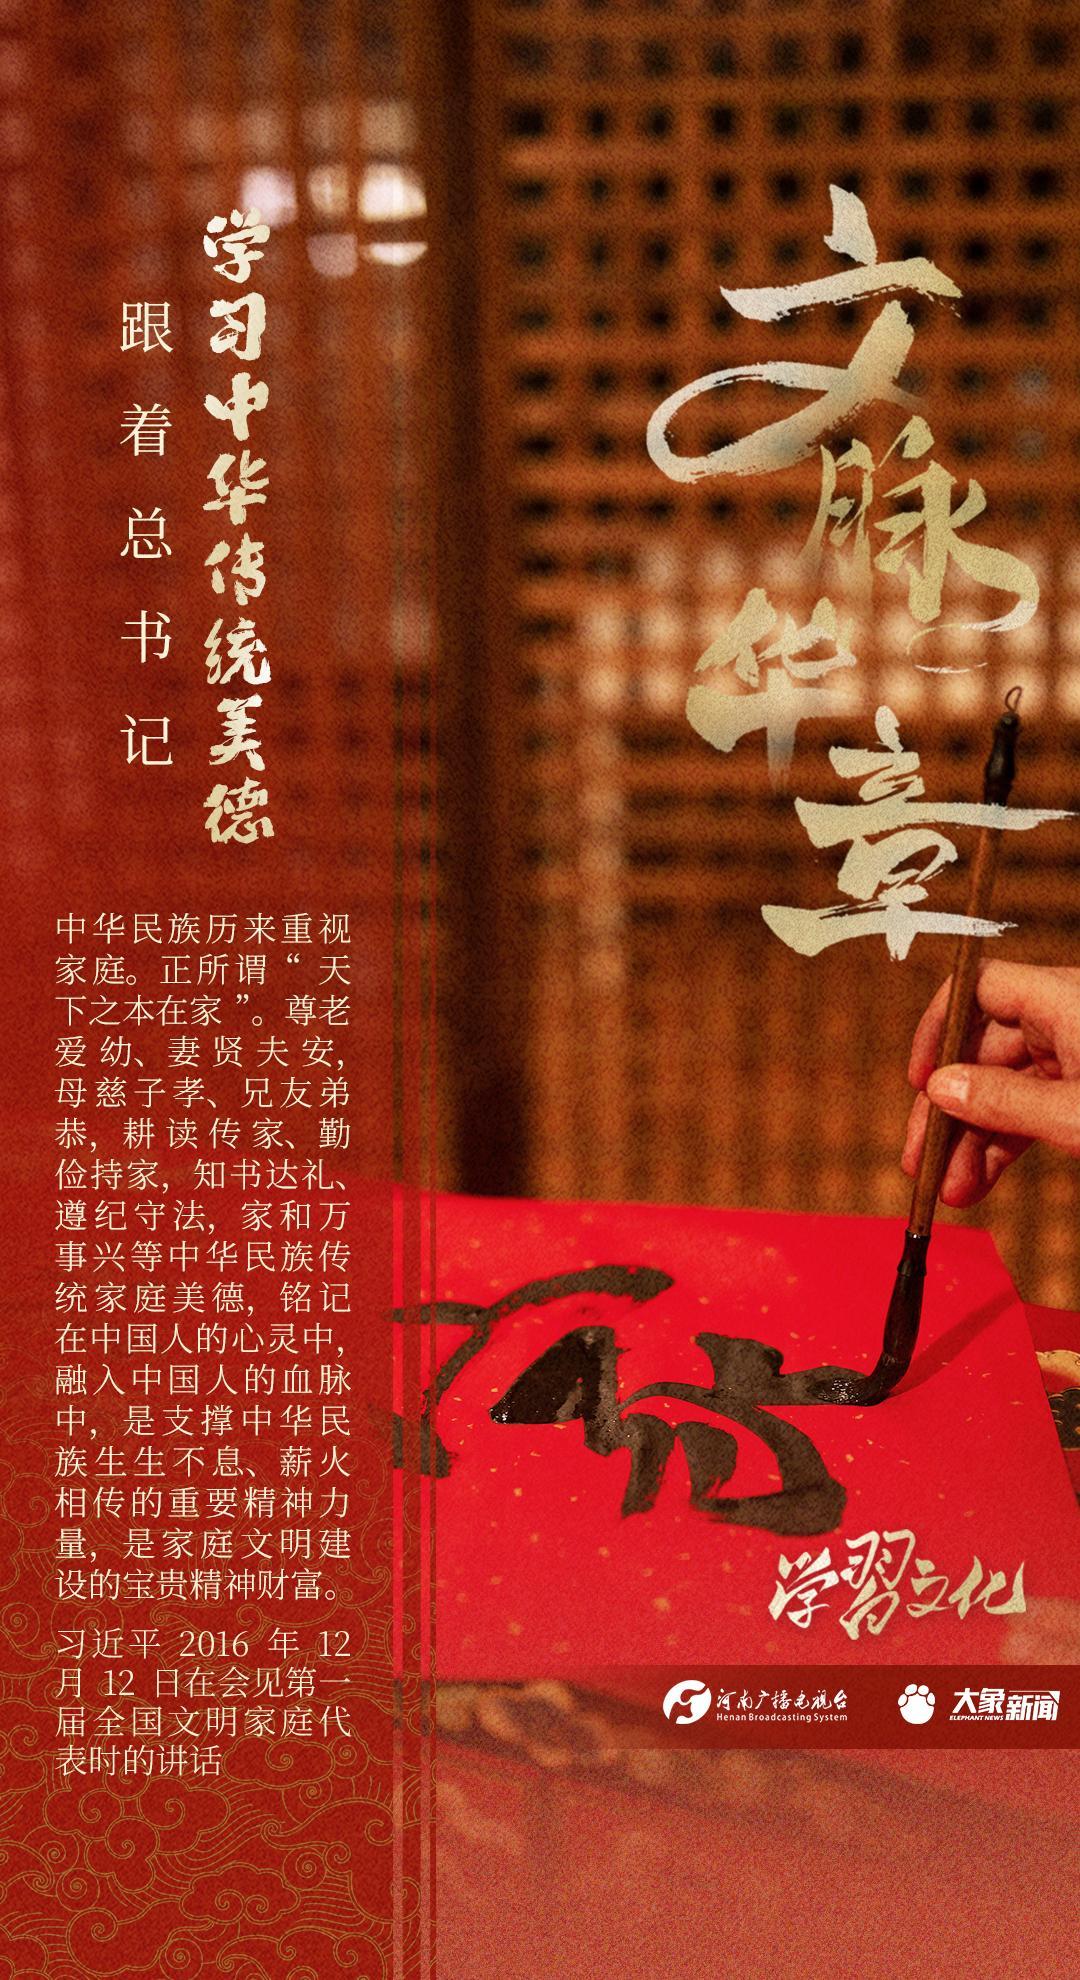 文脉华章
跟着总书记
学习中华传统美德
中华民族历来重视
家庭。正所谓“天
下之本在家”。尊老
爱幼、妻贤夫安,
母慈子孝、兄友弟
恭,耕读传家、勤
俭持家,知书达礼、
遵纪守法,家和万
事兴等中华民族传
统家庭美德,铭记
在中国人的心灵中,
融入中国人的血脉
中,是支撑中华民
族生生不息、薪火
相传的重要精神力
量,是家庭文明建
设的宝贵精神财富。
习近平 2016 年 12
月 12 日在会见第一
届全国文明家庭代
表时的讲话
学習文化
河南广播电视台
Henan Broadcasting System
大象新闻
ELEPHANT NEWS